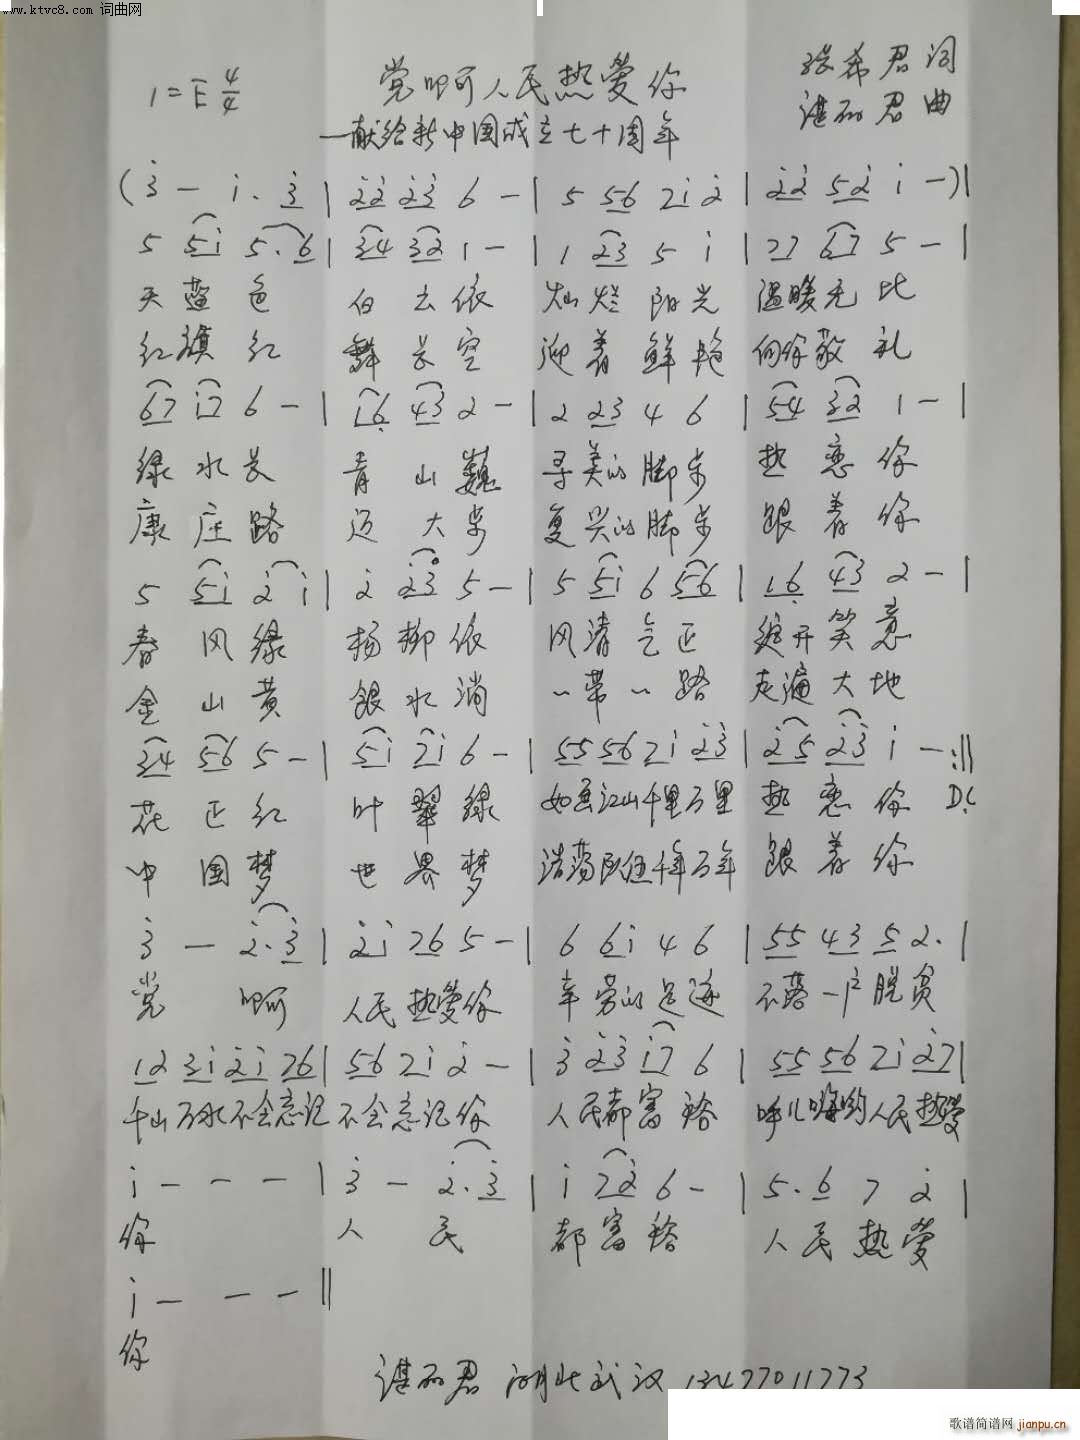 www.ktvc8.com 词曲网
1=E 4/4 党啊人民热爱你 张希君词
——献给新中国成立七十周年 谌丽君曲
(3̇ — i. 3̇ | 2̇2̇ 2̇3̇ 6 — | 5 56 7i 2̇ | 2̇2̇ 52̇ i —)|
5 5i 5.6 | 34 32 1 — | 1 23 5 i | 77 67 5 — |
天蓝色 白云依 灿烂阳光 温暖无比
红旗红 舞长空 迎着鲜艳 向你敬礼
67 i7 6 — | 16 43 2 — | 2 23 4 6 | 54 32 1 — |
绿水长 青山巍 寻美的脚步 热恋你
康庄路 迈大步 复兴的脚步 跟着你
5 5i 2̇ i | 2̇ 2̇3̇ 5 — | 5 5i 6 56 | 16 43 2 — |
春风绿 杨柳依 风清气正 绽开笑意
金山黄 银水淌 一带一路 走遍大地
34 56 5 — | 5i 7i 6 — | 55 56 7i 2̇3̇ | 2̇5 2̇3̇ i — :‖
花正红 叶翠绿 如画江山千里万里 热恋你 D.C
中国梦 世界梦 浩荡队伍千年万年 跟着你
3̇ — 2̇.3̇ | 2̇i 76 5 — | 6 6i 4 6 | 55 43 5 2. |
党啊 人民热爱你 辛劳的足迹 不落一户脱贫
12 3i 2̇i 76 | 56 7i 2̇ — | 3̇ 2̇3̇ i7 6 | 55 56 7i 2̇7 |
千山万水不会忘记 不会忘记你 人民都富裕 呼儿嗨哟人民热爱
i — — — | 3̇ — 2̇.3̇ | i 72̇ 6 — | 5.6 7 2̇ |
你 人民 都富裕 人民热爱
i — — — ‖
你
谌丽君 湖北武汉 13477011773
歌谱简谱网 jianpu.cn